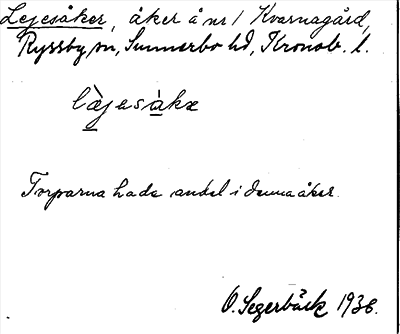 Lejesåker, åker å nr 1 Kvarnagård,
Ryssby sn, Sunnerbo hd, Kronob. l.
læjesåkæ
Torparna hade andel i denna åker.
O. Segerbäck 1936.